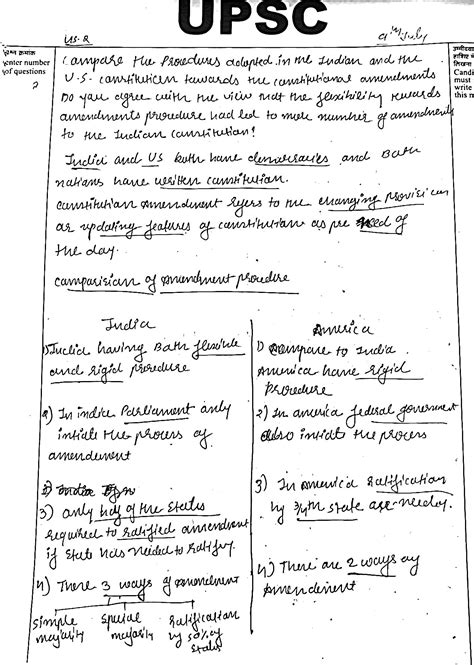 UPSC
US. R
9th July
प्रश्न क्रमांक
enter number
of questions
2
उम्मीदवार
Candi
must
write
this m
Compare the Procedures adopted in the Indian and the
U.S. constitution towards the constitutional amendments
Do you agree with the view that the flexibility towards
amendments procedure had led to more number of amendments
to the Indian constitution?
India and US both have democracies and Both
nations have written constitution.
constitution Amendment refers to the changing provision
or updating features of constitution as per need of
the day.
comparision of Amendment procedure
India
1) India having Both flexible
and rigid procedure
2) In india Parliament only
intiate the process of
amendement
3) only half of the states
required to ratified amendment
if state has needed to ratify.
4) There 3 ways of Amendement
simple
majority
special
majority
Ratification
by 50% of
states
America
1) compare to India
America have rigid
Procedure
2) In america federal government
also intiate the process
3) In America Ratification
by 3/4th state are needed.
4) There are 2 ways of
Amendement